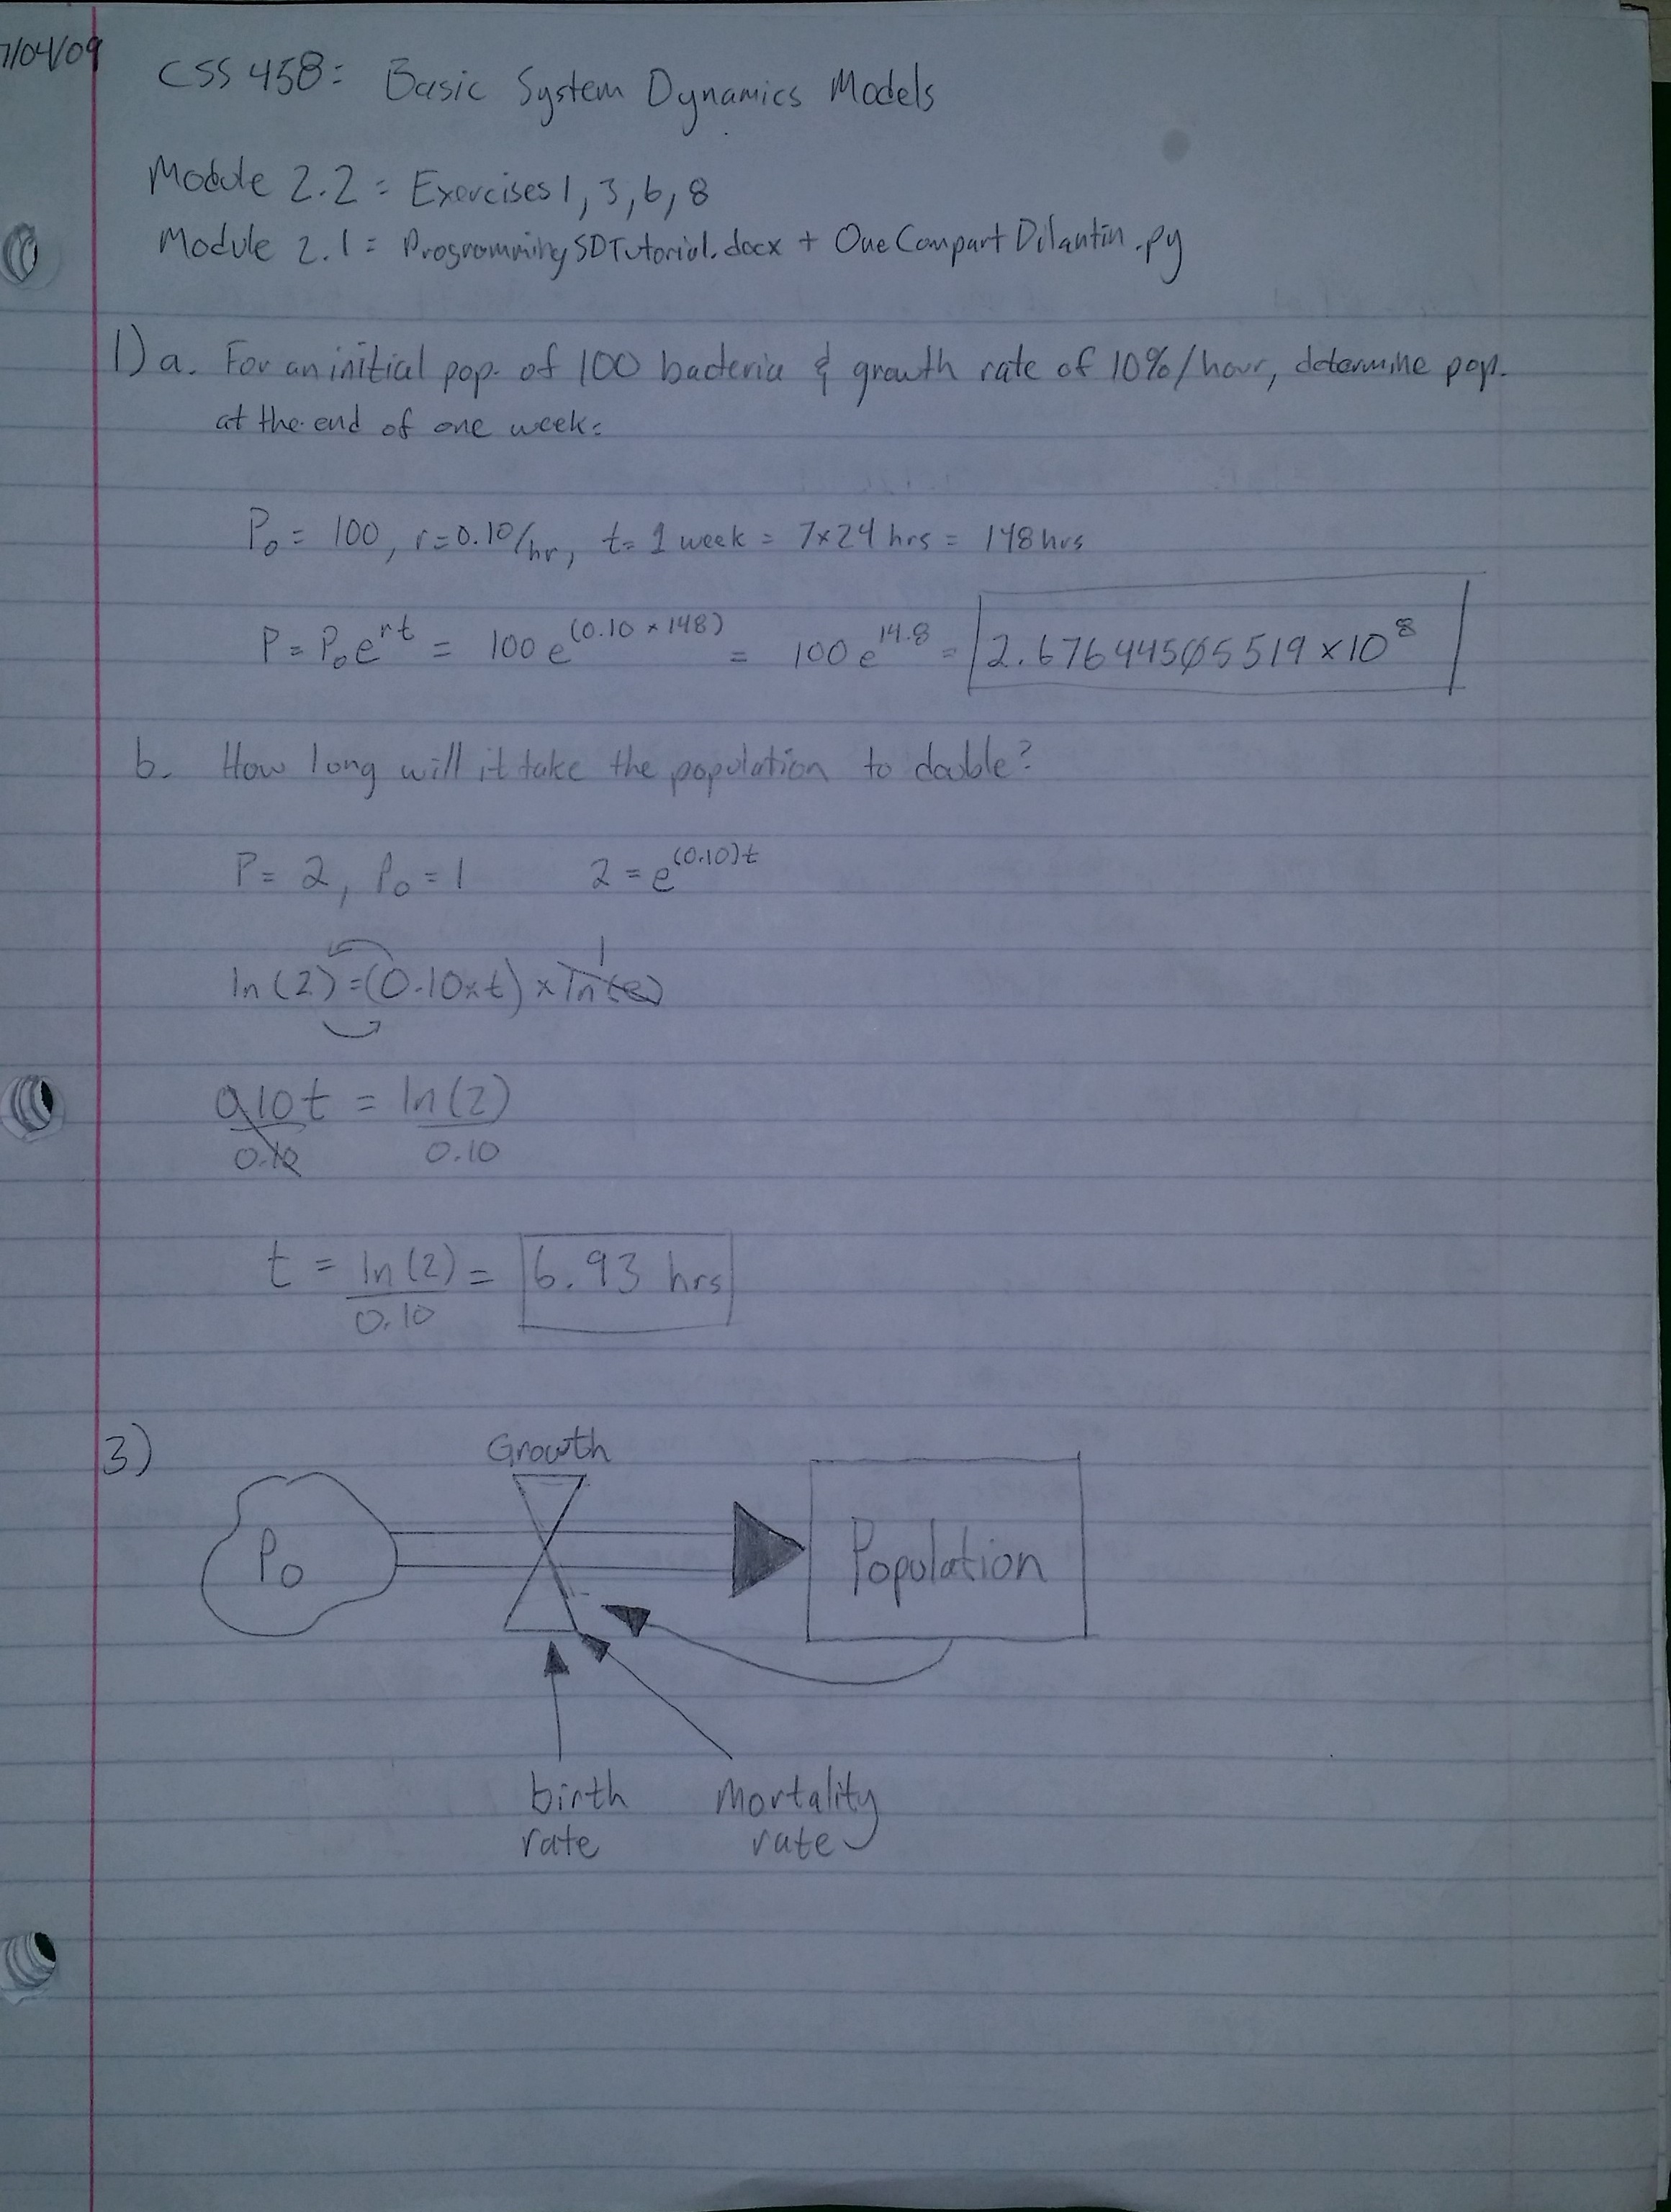 7/04/09
CSS 458: Basic System Dynamics Models
Module 2.2 = Exercises 1, 3, 6, 8
Module 2.1 = ProgrammingSDTutorial.docx + OneCompartDilantin.py
1) a. For an initial pop. of 100 bacteria & growth rate of 10%/hour, determine pop.
at the end of one week:
P₀ = 100, r=0.10/hr, t= 1 week = 7×24 hrs = 148 hrs
P = P₀e^rt = 100 e^(0.10 × 148) = 100 e^14.8 = 2.67644505519 × 10^8
b. How long will it take the population to double?
P = 2, P₀ = 1 2 = e^(0.10)t
1
ln(2) = (0.10×t) × ln(e)
0.10t = ln(2)
0.10 0.10
t = ln(2) = 6.93 hrs
0.10
3)
Growth
P₀
Population
birth rate
mortality rate